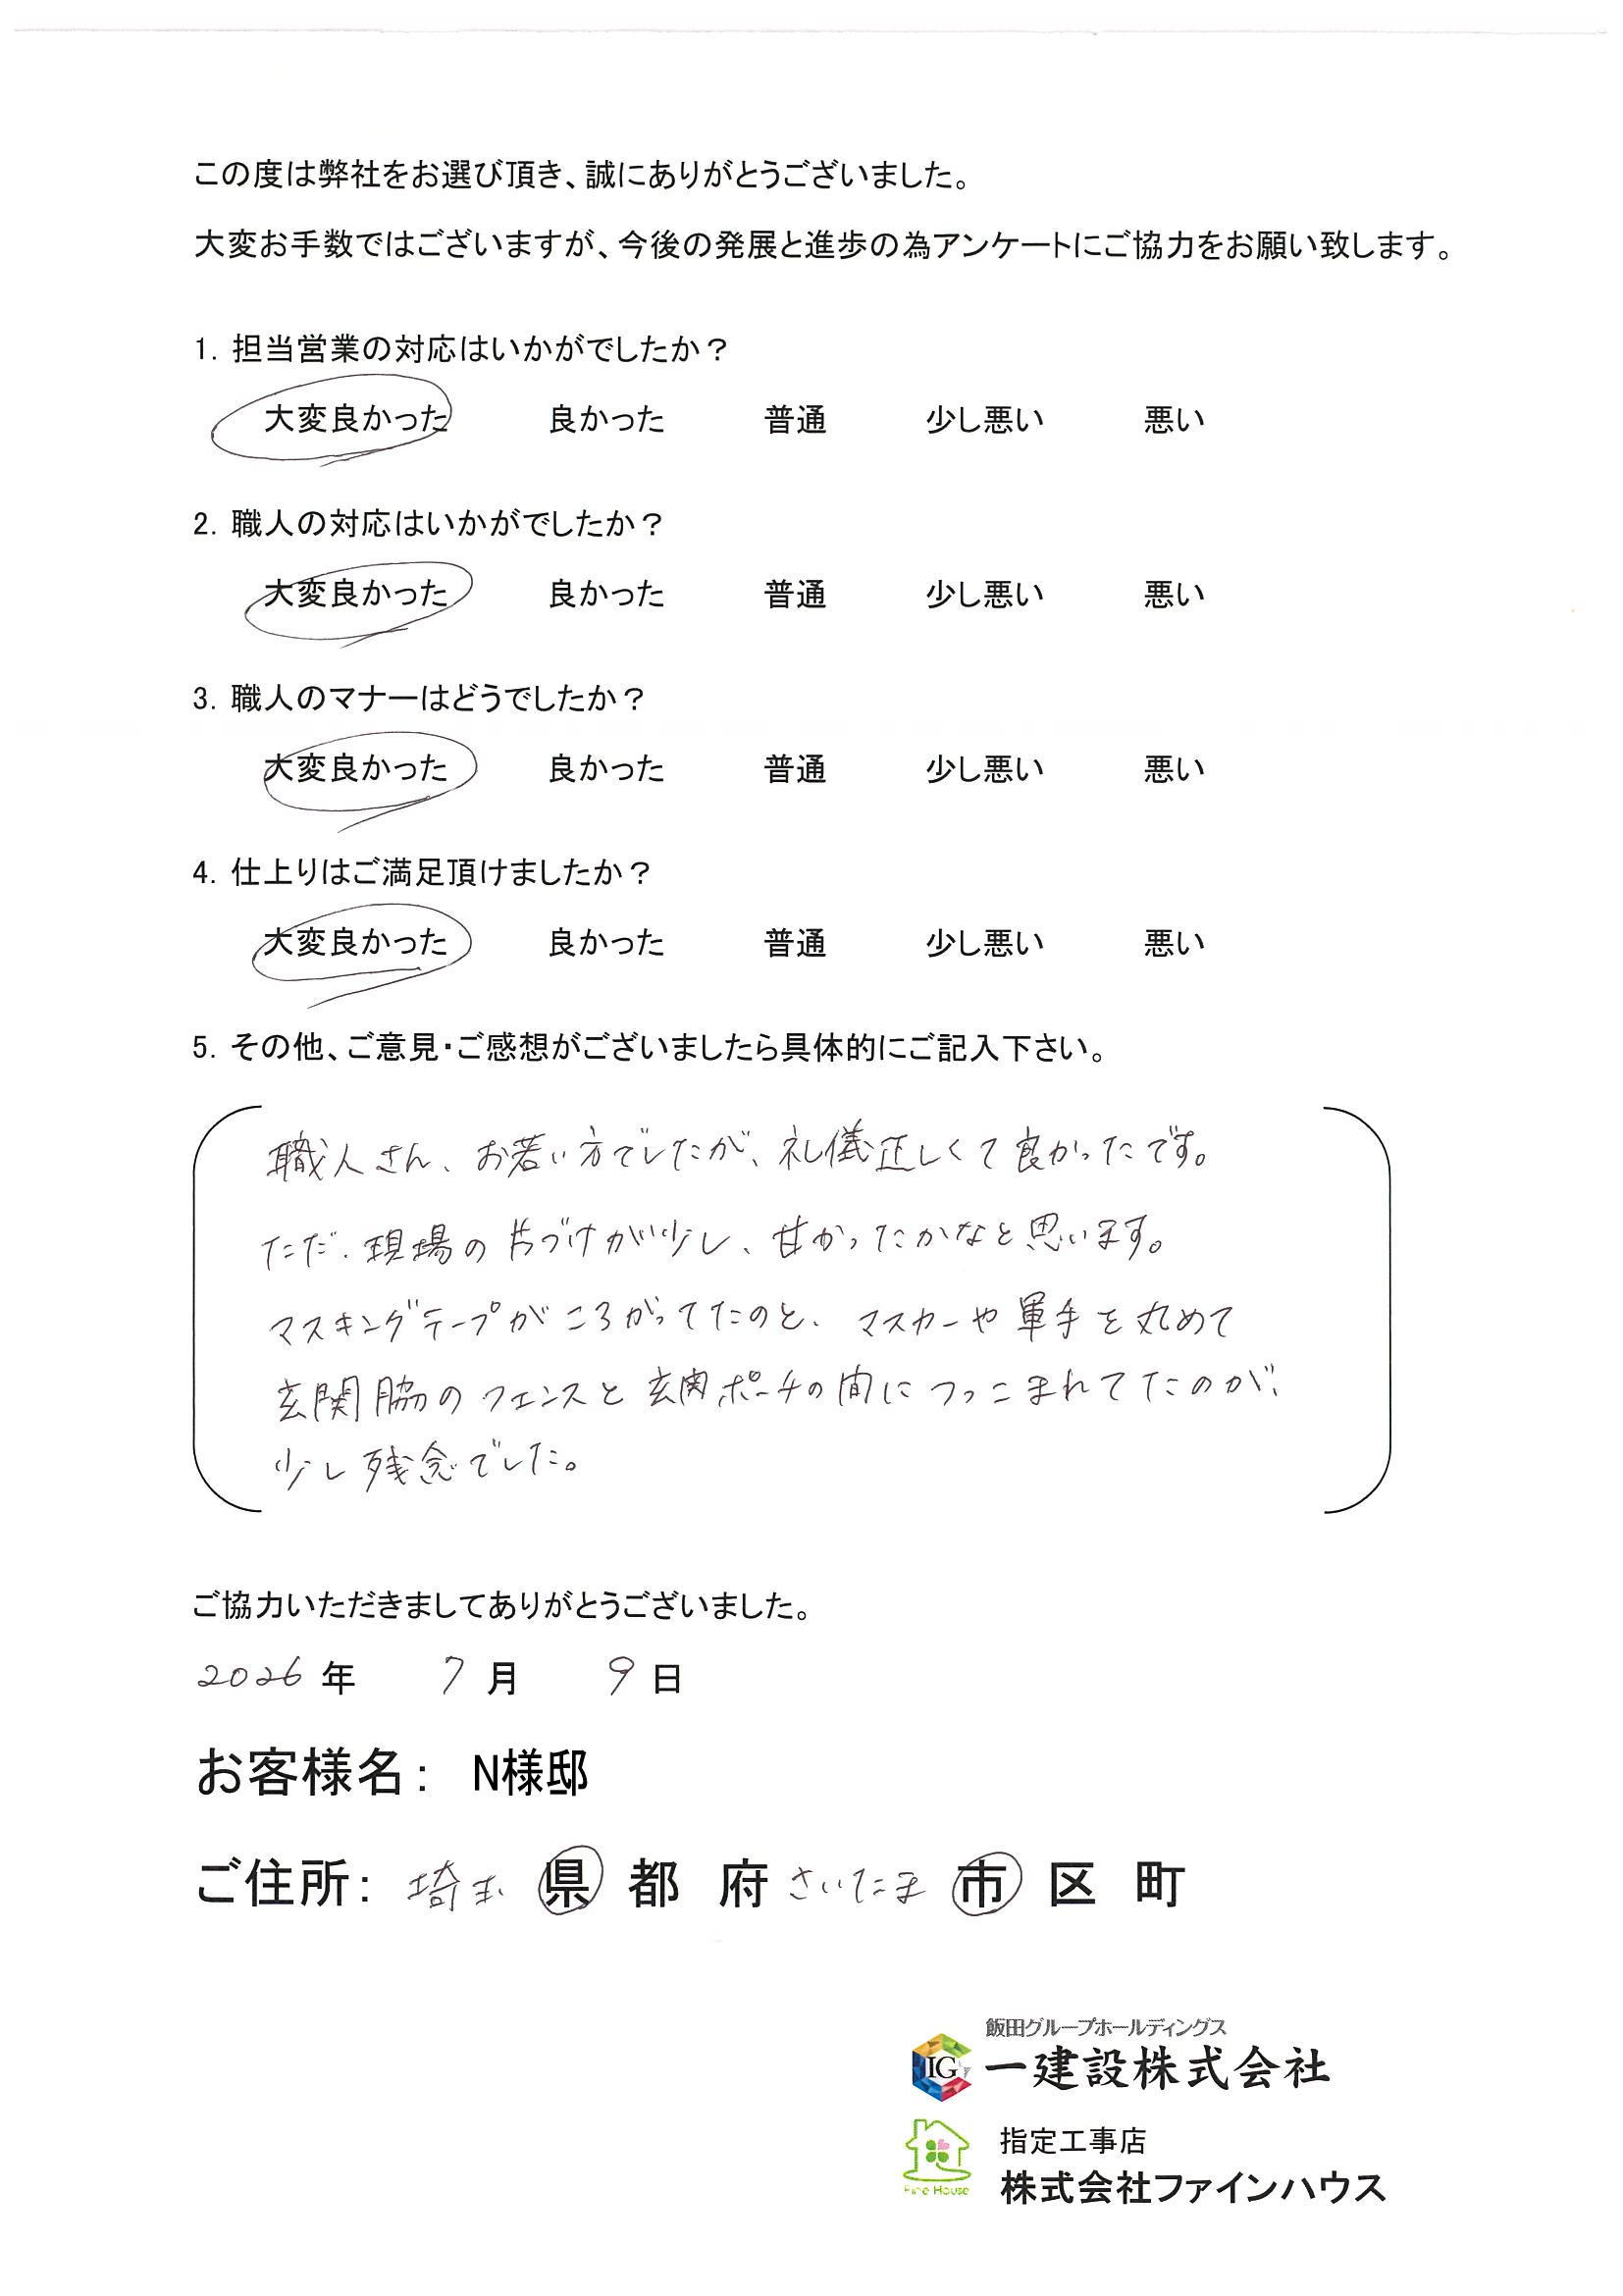 この度は弊社をお選び頂き、誠にありがとうございました。
大変お手数ではございますが、今後の発展と進歩の為アンケートにご協力をお願い致します。
1. 担当営業の対応はいかがでしたか？
大変良かった 良かった 普通 少し悪い 悪い
2. 職人の対応はいかがでしたか？
大変良かった 良かった 普通 少し悪い 悪い
3. 職人のマナーはどうでしたか？
大変良かった 良かった 普通 少し悪い 悪い
4. 仕上りはご満足頂けましたか？
大変良かった 良かった 普通 少し悪い 悪い
5. その他、ご意見・ご感想がございましたら具体的にご記入下さい。
職人さん、お若い方でしたが、礼儀正しくて良かったです。
ただ、現場の片づけが少し、甘かったかなと思います。
マスキングテープがころがってたのと、マスカーや軍手を丸めて
玄関脇のフェンスと玄関ポーチの間につっこまれてたのが、
少し残念でした。
ご協力いただきましてありがとうございました。
2026 年 7 月 9 日
お客様名： N様邸
ご住所： 埼玉 県 都 府 さいたま 市 区 町
飯田グループホールディングス
IG 一建設株式会社
指定工事店
Fine House 株式会社ファインハウス